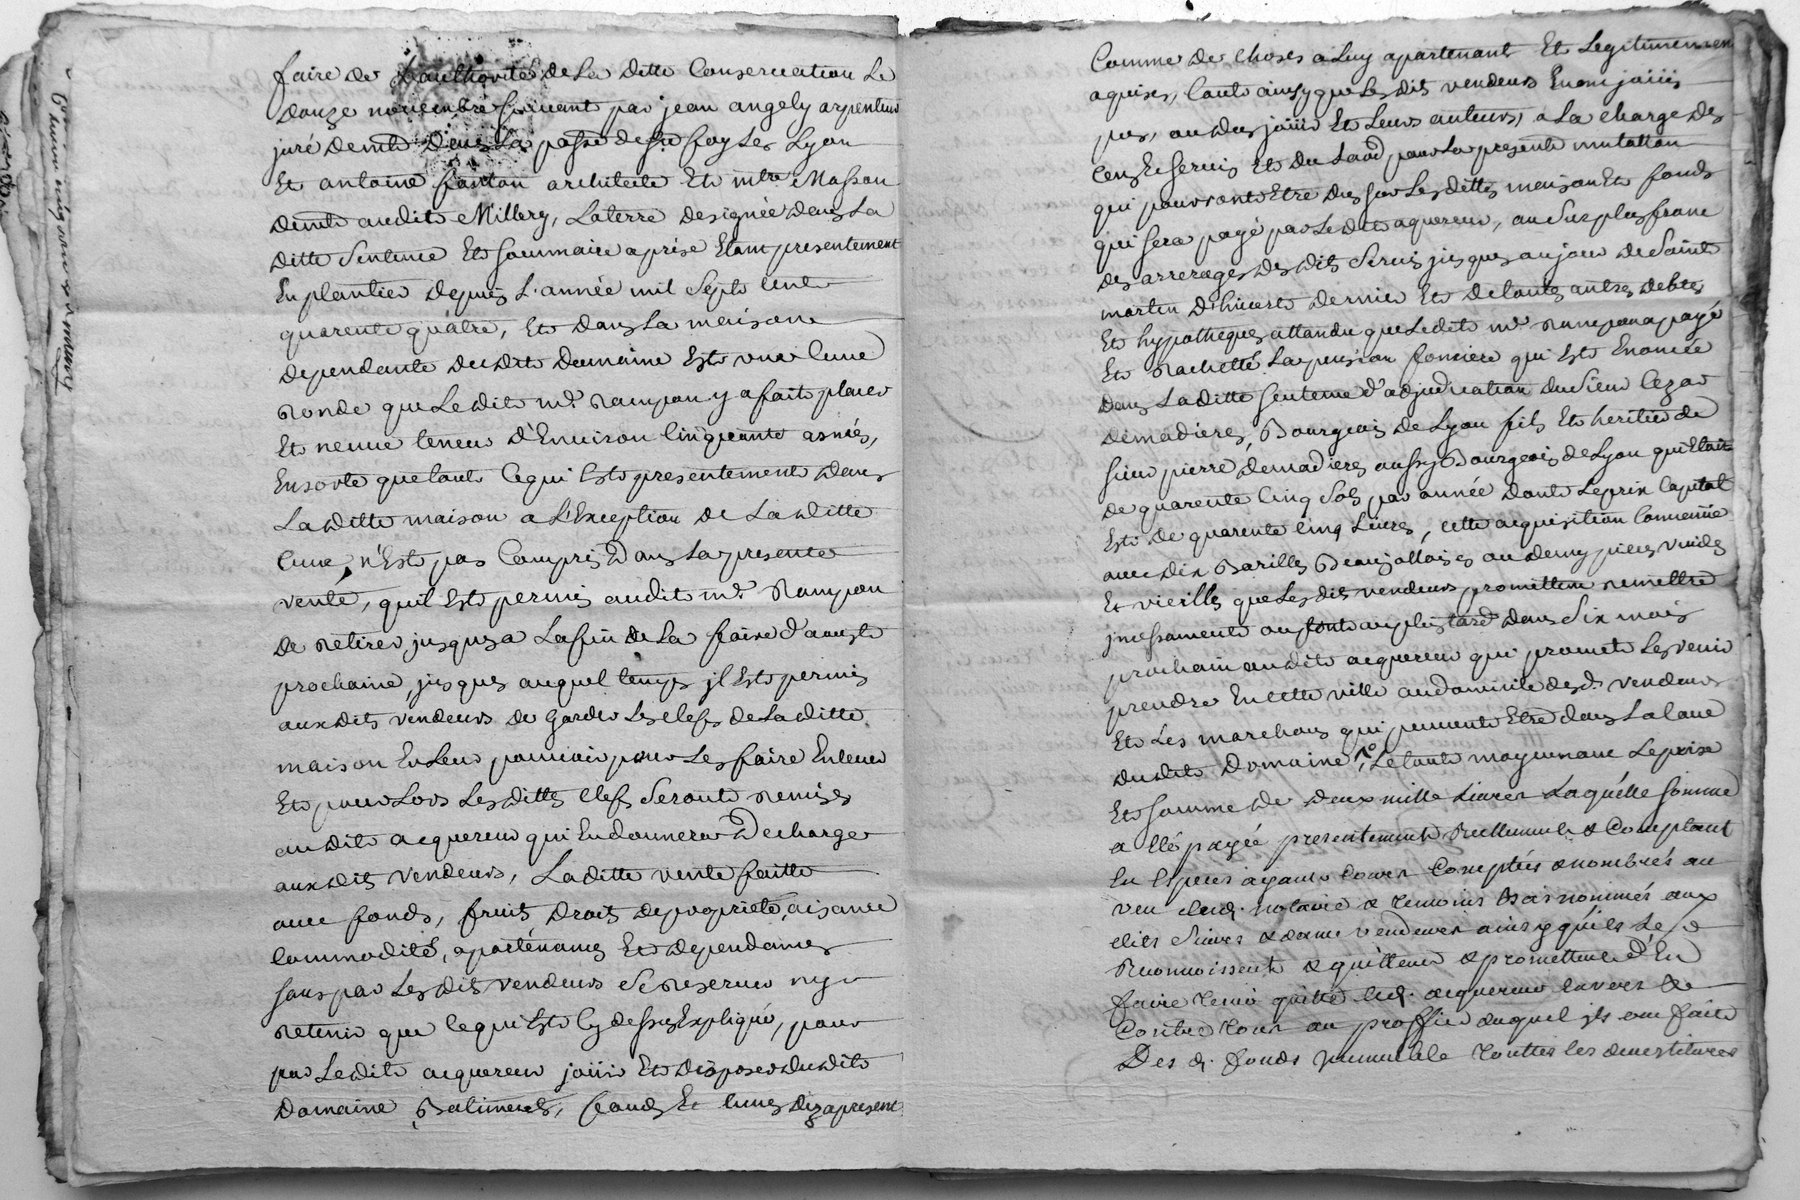 faire de Lauthorité de La ditte Conservation Le
douze novembre suivant par jean angely arpenteur
juré demt dans La passe de ste foy Les Lyon
Et antoine fanton architecte Et mtre Masson
demt audit Millery, La terre designée dans La
ditte Sentence Et sommaire aprise Etant presentement
En plantier depuis L'année mil Sept Cent
quarente quatre, Et dans La maison
dependante dudit Domaine Est une Cuve
Ronde que Ledit mr. Rampon y a fait placer
Et neuve teneur d'Environ Cinquante asnées,
Ensorte que tout Ce qui Est presentement dans
La ditte maison a L'Exception de La ditte
Cuve, n'Est pas Compris Dans La presente
vente, quil Est permis audit mr. Rampon
de Retirer jusqu'a La fin de La foire d'aoust
prochaine, jusques auquel temps jl Est permis
aux dits vendeurs de Garder Les Clefs de La ditte
maison En Leur pouvoir pour Les faire Enlever
Et pour Lors Lesdittes Clefs Seront Remises
audit acquereur qui En donnera Decharge
aux dits vendeurs, La ditte vente faitte
avec fonds, fruits, Droits de proprieté, aisance
Commodité, apartenances Et dependances
sans par Les dits vendeurs Se Reserver ny
Retenir que Ce qui Est Cy dessus Expliqué, pour
par Ledit acquereur joüir Et disposer dudit
Domaine, Batiments, fonds Et Cuves des apresent
Comme de Choses a Luy apartenant Et Legitimement
aquises, tout ainsy que Les dits vendeurs En ont joüis
pus, ou deu joüir Et Leurs auteurs, a La charge des
Cens Et Servis Et du Laod pour La presente mutation
qui pourront Etre dus sur Lesdittes maison Et fonds
qui sera payé par Ledit aquereur, au Surplus franc
des arrerages desdits Servis jusques au jour de Saint
martin d'hivert dernier Et de toutes autres debtes
Et hypotheques attandu que Ledit mr. Rampon a payé
Et Rachetté La pension fonciere qui Est Enoncée
Dans La ditte Sentence d'adjudication du Sieur Cezar
demadieres, Bourgeois de Lyon fils Et heritier de
sieur pierre demadieres aussy Bourgeois de Lyon qui Etoit
de quarente Cinq Sols par année dont Le prix Capital
Est de quarente Cinq Livres, cette acquisition Convenüe
avec dix Barilles Beaujollaises ou demy pieces vuides
Et vieilles que Les dits vendeurs promettent remettre
jncessamment ou tout au plus tard Dans Six mois
prochain audit acquereur qui promet Les venir
prendre En cette ville au domicile desd. vendeurs
Et Les marchons qui peuvent Etre dans La Cave
dudit Domaine, Le tout moyennant Le prix
Et somme de deux mille Livres Laquelle somme
a Eté payée presentement Reellement & Comptant
En Especes ayant Cours Comptées & nombrées au
veu dud. notaire & temoins Bas nommés aux
dits Sieurs & dame vendeurs ainsy qu'ils Le
Reconnoissent & quittent & promettent d'En
faire tenir quitte led. acquereur Envers &
Contre tous au proffit duquel jls ont fait
Des d. fonds jmmeuble touttes les devestitures